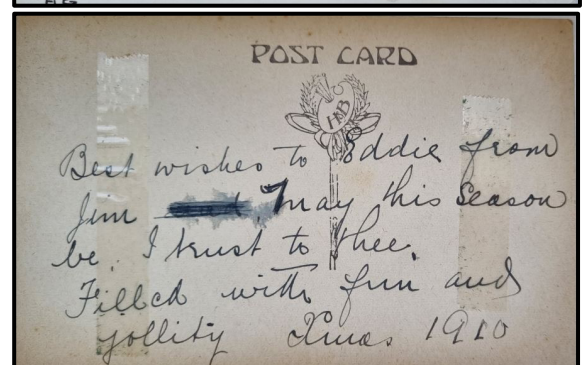 POST CARD
HB
Best wishes to Eddie from
Jim may this Season
be. I trust to thee.
Filled with fun and
jollity Xmas 1910